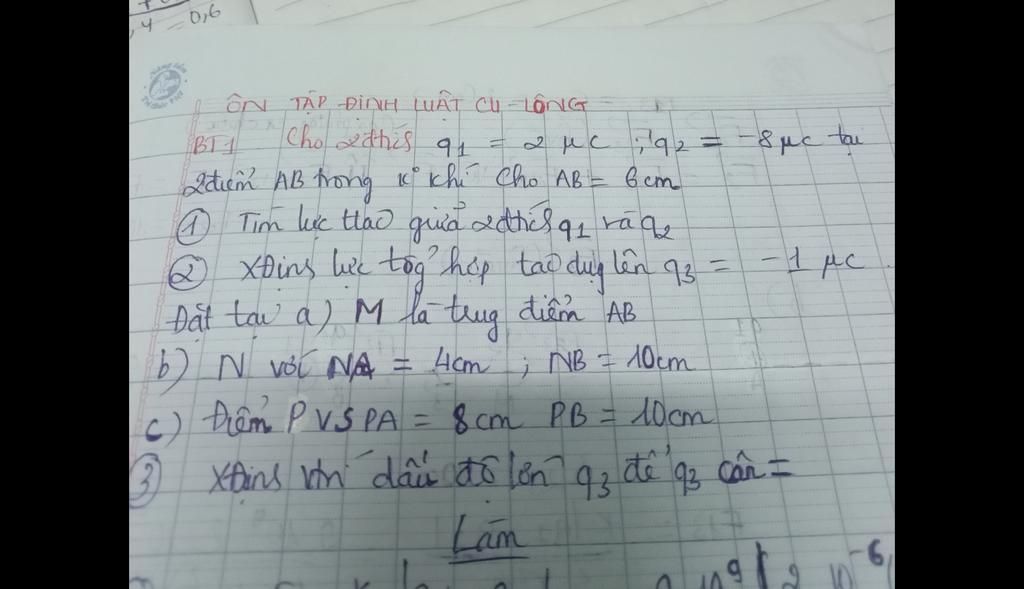 ,4 = 0,6
ÔN TẬP ĐỊNH LUẬT CU-LÔNG
BT1 Cho 2 đthís q1 = 2 μc ; q2 = -8 μc tại
2 điểm AB trong k° khí Cho AB = 6cm
① Tìm lực ttác giữa 2 đthís q1 và q2
② XĐins lực tổg hợp tác dụg lên q3 = -1 μc.
Đặt tại a) M là trug điểm AB
b) N với NA = 4cm ; NB = 10cm
c) Điểm P vs PA = 8cm PB = 10cm
③ XĐins vtrí dấu độ lớn q3 để q3 cân =
Làm
10⁹ | 2 10⁻⁶